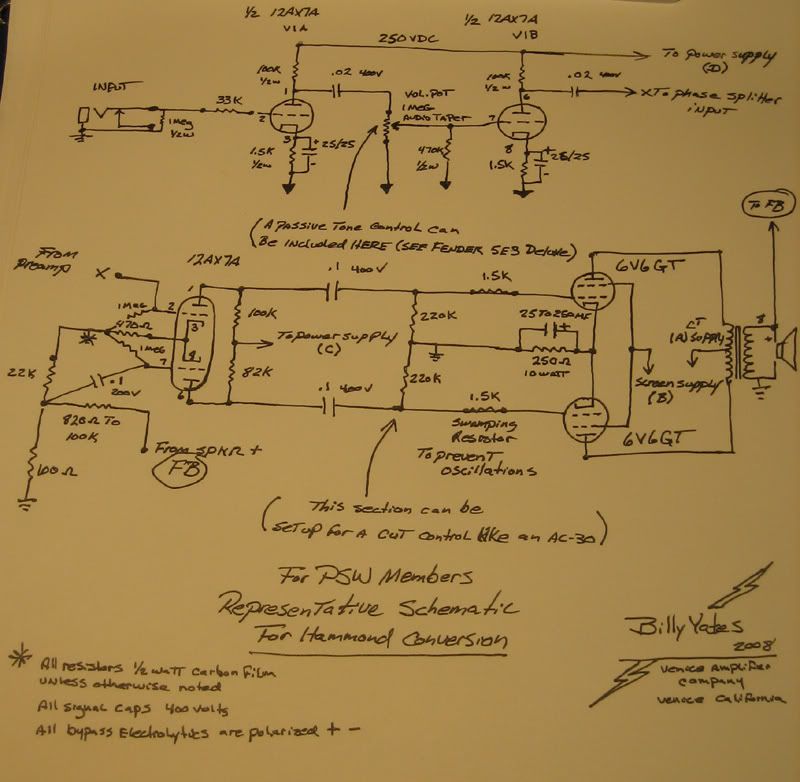 ½ 12AX7A
V1A
½ 12AX7A
V1B
250VDC
To power supply
(D)
INPUT
33K
1Meg
½W
100K
½W
1
2
3
.02 400V
VOL. POT
1 MEG
AUDIO TAPER
1.5K
½W
+
25/25
-
470K
½W
100K
½W
6
7
8
.02 400V
X To phase splitter
input
1.5K
+
25/25
-
(A Passive Tone Control can
Be Included HERE (SEE FENDER 5E3 Deluxe)
To FB
From
Preamp
X
12AX7A
1
2
3
8
7
6
1Meg
470Ω
1Meg
22K
.1
200V
820Ω To
100K
100Ω
From SPKR +
FB
100K
82K
To power supply
(C)
.1 400V
.1 400V
220K
220K
1.5K
25 TO 250MF
+
250Ω
10 WATT
6V6GT
6V6GT
1.5K
Swamping
Resistor
To prevent
oscillations
CT
(A) Supply
Screen supply
(B)
8
+
(This section can be
SET UP FOR A CUT Control like an AC-30)
For PSW Members
Representative Schematic
For Hammond Conversion
Billy Yates
2008
Venice Amplifier
Company
Venice California
* All resistors ½ watt Carbon Film
unless otherwise noted
All signal caps 400 volts
All bypass Electrolytics are polarized + -